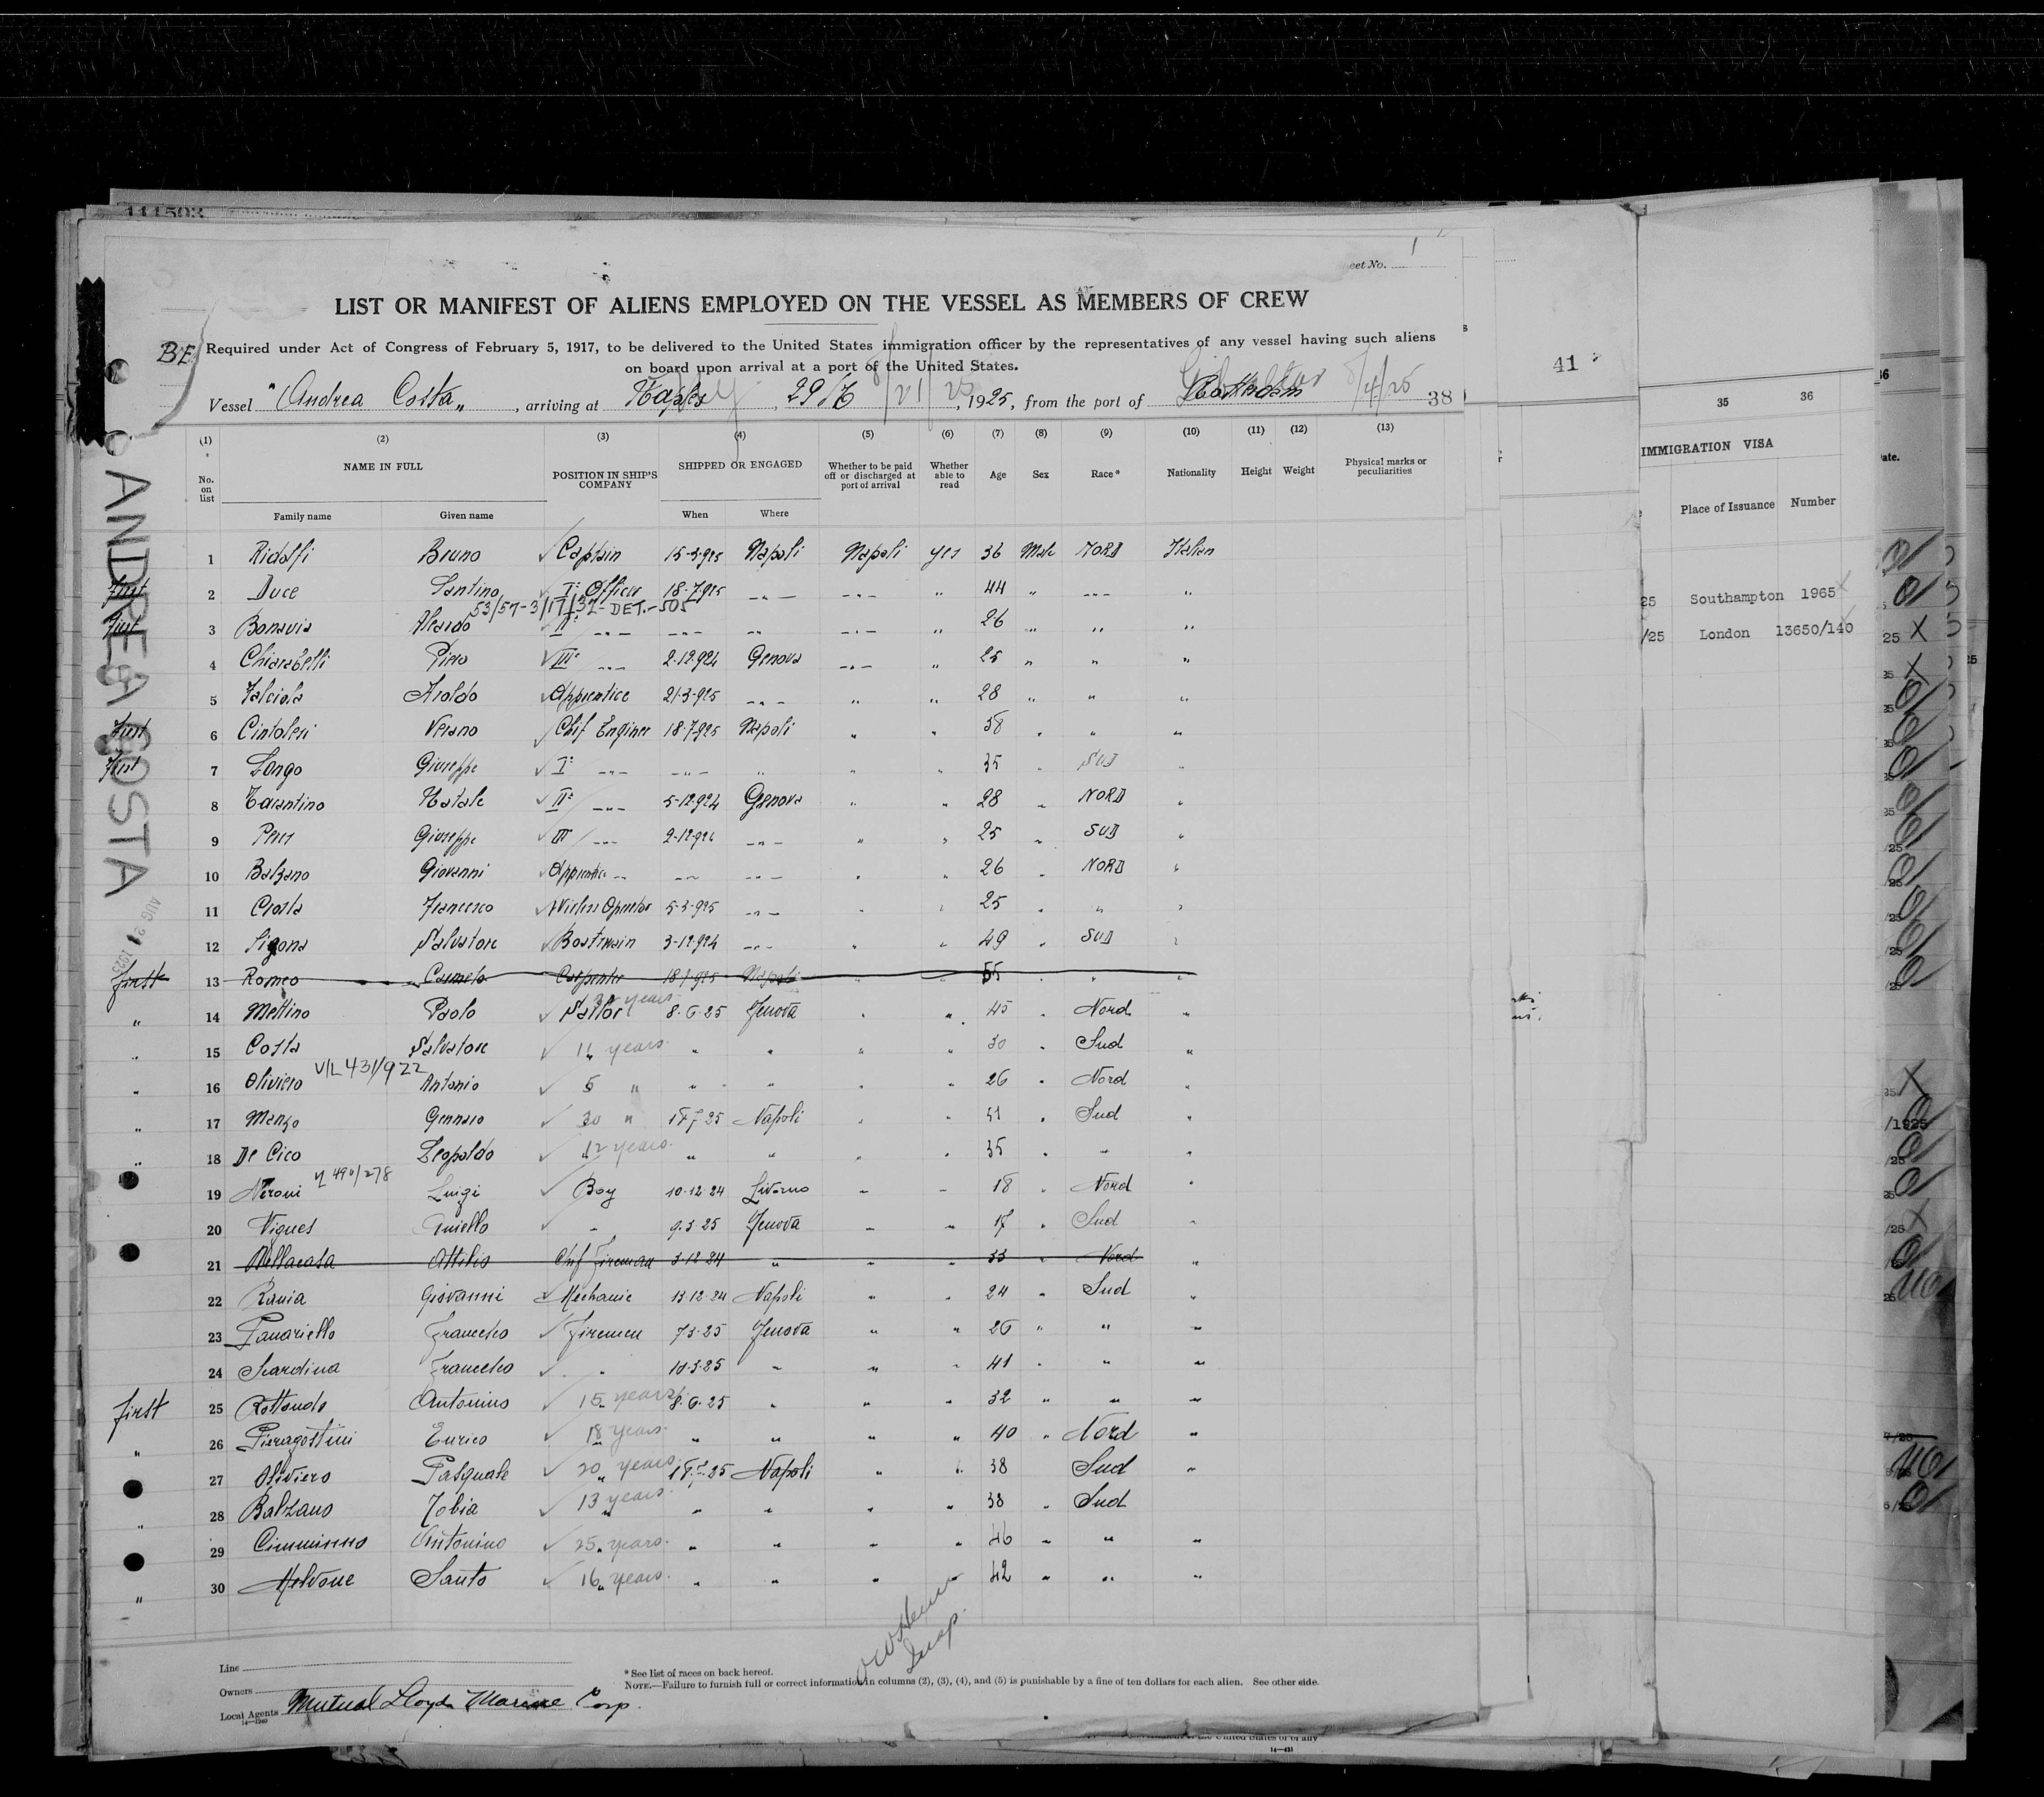 111503
eet No. 1
LIST OR MANIFEST OF ALIENS EMPLOYED ON THE VESSEL AS MEMBERS OF CREW
BE
Required under Act of Congress of February 5, 1917, to be delivered to the United States immigration officer by the representatives of any vessel having such aliens
on board upon arrival at a port of the United States.
Vessel "Andrea Costa", arriving at Naples, 8/21/25, 1925, from the port of Gibraltar 8/4/25 38
ANDREA COSTA
AUG 21 1925
(1) (2) (3) (4) (5) (6) (7) (8) (9) (10) (11) (12) (13)
No. on list NAME IN FULL POSITION IN SHIP'S COMPANY SHIPPED OR ENGAGED Whether to be paid off or discharged at port of arrival Whether able to read Age Sex Race* Nationality Height Weight Physical marks or peculiarities
Family name Given name When Where
1 Ridolfi Bruno Captain 15-3-925 Napoli Napoli yes 36 Male NORD Italian
First 2 Duce Santino I° Officer 18-7-925 -"- -"- " 44 " -"- "
53/57-3/17/37-DET.-505
First 3 Bonavia Aleardo II° -"- -"- " -"- " 26 " " "
4 Chiarabelli Piero III° -"- 2-12-924 Genova -"- " 25 " " "
5 Falciola Aroldo Apprentice 21-3-925 -"- " " 28 " " "
First 6 Cintolesi Verano Chif Enginer 18-7-925 Napoli " " 58 " " "
First 7 Longo Giuseppe I° -"- -"- " " " 35 " SUD "
8 Tarantino Natale II° -"- 5-12-924 Genova " " 28 " NORD "
9 Giuseppe III° -"- 2-12-924 -"- " " 25 " SUD "
10 Balzano Giovanni Apprentice -"- -"- -"- " " 26 " NORD "
11 Costa Francesco Wirless Operator 5-3-925 -"- " " 25 " " "
12 Sigona Salvatore Boatswain 3-12-924 -"- " " 49 " SUD "
first 13 Romeo Carmelo Carpenter 18-7-925 Napoli " " 55 " " "
" 14 Mettino Paolo Sailor years 8.6.25 Genova " " 45 " Nord "
" 15 Costa Salvatore 11 years " " " " 30 " Sud "
V/L 431/922
" 16 Oliviero Antonio 5 " " " " " 26 " Nord "
" 17 Manzo Gennaro 30 " 18.7.25 Napoli " " 51 " Sud "
" 18 De Cico Leopoldo 12 years " " " " 35 " " "
490/278
19 Neroni Luigi Boy 10.12.24 Livorno " " 18 " Nord "
20 Vigues Aniello " 9.3.25 Genova " " 17 " Sud "
21 Dellacasa Attilio Chif Fireman 3.12.24 " " " 33 " Nord "
22 Rania Giovanni Mechanic 13.12.24 Napoli " " 24 " Sud "
23 Panariello Francesco Firemen 7.3.25 Genova " " 26 " " "
24 Scardina Francesco " 10.3.25 " " " 41 " " "
first 25 Rottondo Antonino 15 years 8.6.25 " " " 32 " " "
" 26 Pieragostini Enrico 18 years " " " " 40 " Nord "
27 Oliviero Pasquale 20 years 18.7.25 Napoli " " 38 " Sud "
" 28 Balzano Tobia 13 years " " " " 38 " Sud
29 Cimminno Antonino 25 years " " " " 46 " " "
" 30 Melvone Santo 16 years " " " " 42 " " "
Insp.
Line
Owners
Local Agents Mutual Lloyds Marine Corp.
14—1240
* See list of races on back hereof.
NOTE.—Failure to furnish full or correct information in columns (2), (3), (4), and (5) is punishable by a fine of ten dollars for each alien. See other side.
41
35 36
IMMIGRATION VISA
Place of Issuance Number
25 Southampton 1965
/25 London 13650/140
ate.
14—431